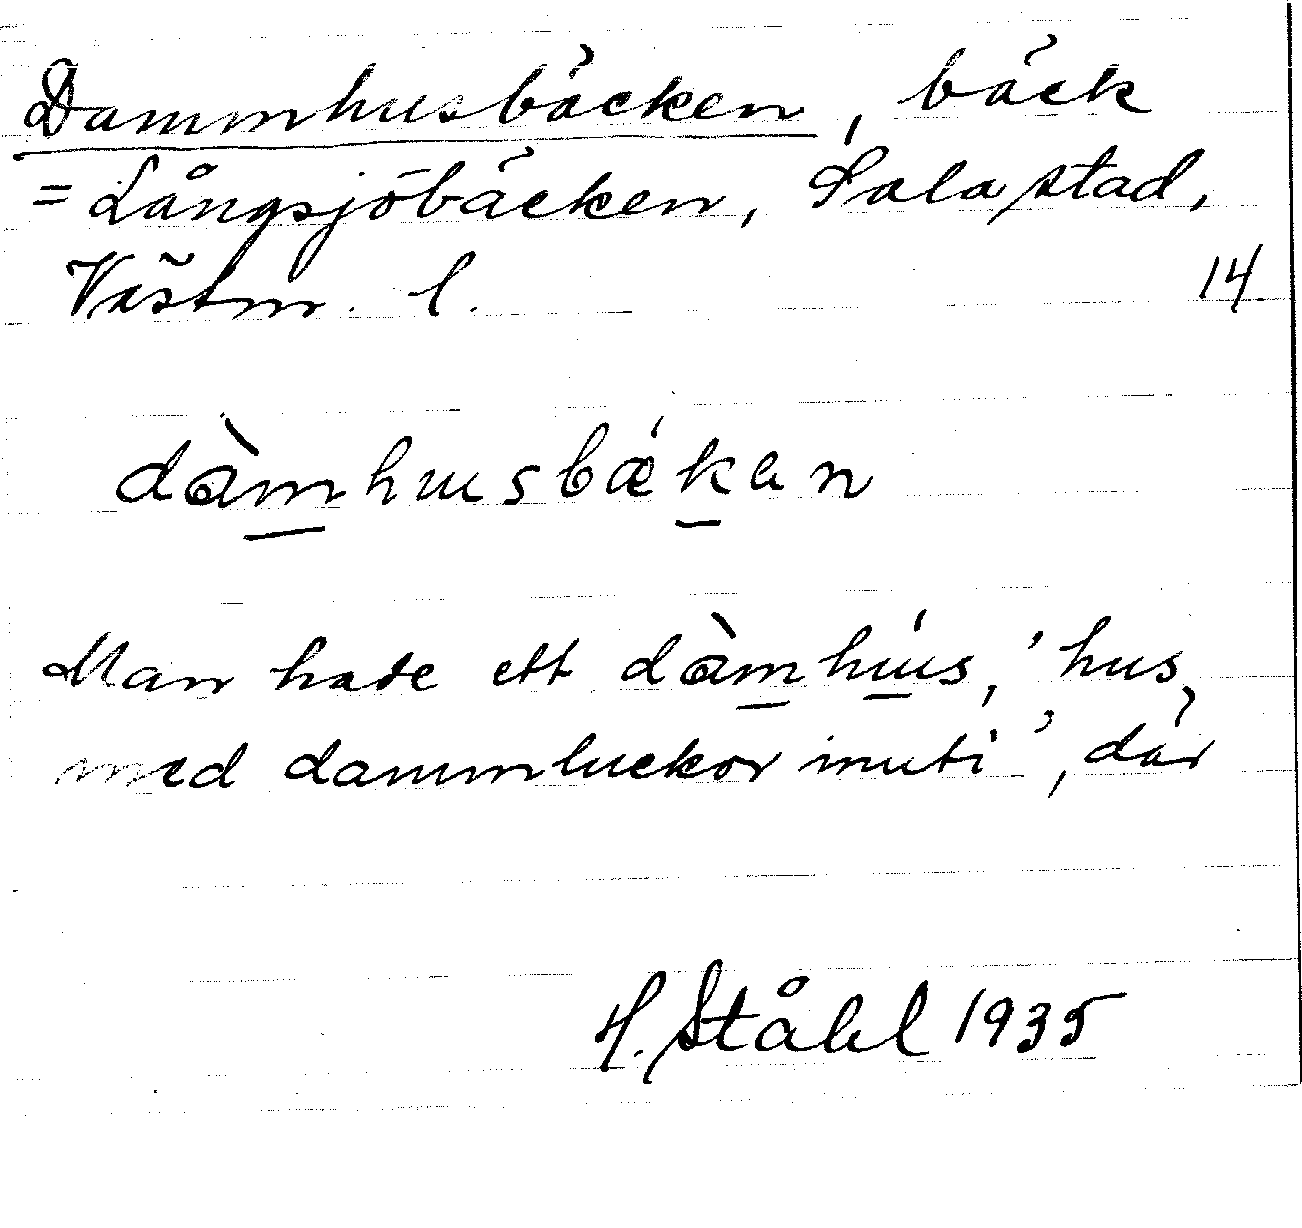 Dammhusbäcken, bäck
= Långsjöbäcken, Sala stad,
Västm. l. 14
dàm̲husbǽk̲an
Man hade ett dàm̲hú̲s, 'hus
med dammluckor inuti', där
H. Ståhl 1935